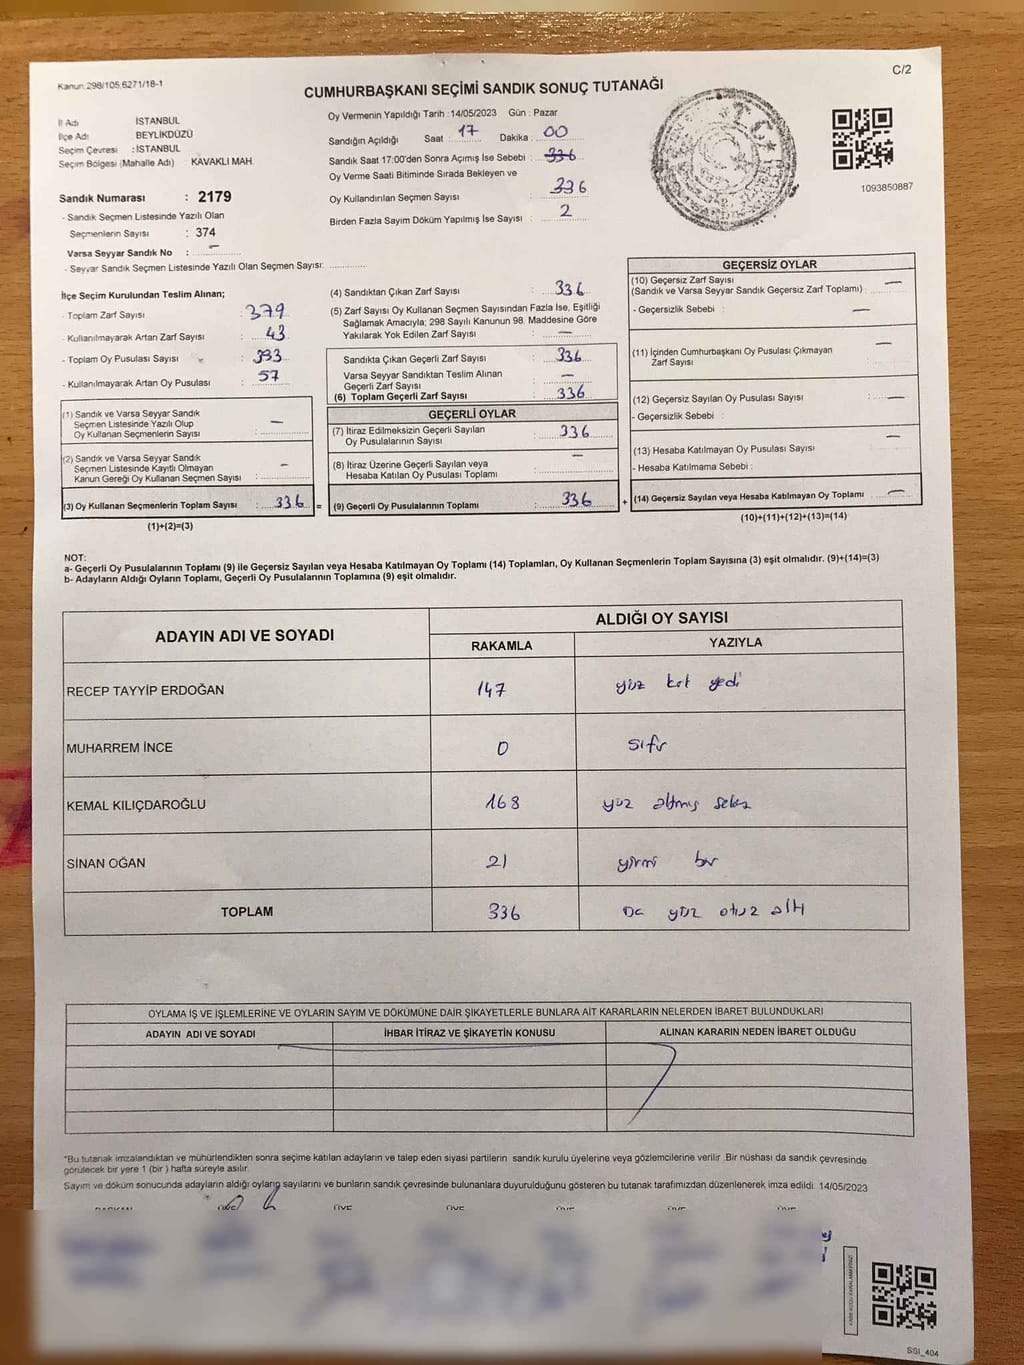 Kanun: 298/105,6271/18-1
C/2
CUMHURBAŞKANI SEÇİMİ SANDIK SONUÇ TUTANAĞI
İl Adı İSTANBUL
İlçe Adı BEYLİKDÜZÜ
Seçim Çevresi : İSTANBUL
Seçim Bölgesi (Mahalle Adı) : KAVAKLI MAH.
Sandık Numarası : 2179
- Sandık Seçmen Listesinde Yazılı Olan
Seçmenlerin Sayısı : 374
Varsa Seyyar Sandık No : —
- Seyyar Sandık Seçmen Listesinde Yazılı Olan Seçmen Sayısı:
Oy Vermenin Yapıldığı Tarih : 14/05/2023 Gün : Pazar
Sandığın Açıldığı Saat : 17 Dakika : 00
Sandık Saat 17:00'den Sonra Açımış İse Sebebi : 336
Oy Verme Saati Bitiminde Sırada Bekleyen ve
Oy Kullandırılan Seçmen Sayısı : 336
Birden Fazla Sayım Döküm Yapılmış İse Sayısı : 2
1093850887
İlçe Seçim Kurulundan Teslim Alınan;
- Toplam Zarf Sayısı : 379
- Kullanılmayarak Artan Zarf Sayısı : 43
- Toplam Oy Pusulası Sayısı : 393
- Kullanılmayarak Artan Oy Pusulası : 57
(1) Sandık ve Varsa Seyyar Sandık
Seçmen Listesinde Yazılı Olup
Oy Kullanan Seçmenlerin Sayısı : —
(2) Sandık ve Varsa Seyyar Sandık
Seçmen Listesinde Kayıtlı Olmayan
Kanun Gereği Oy Kullanan Seçmen Sayısı : —
(3) Oy Kullanan Seçmenlerin Toplam Sayısı : 336 =
(1)+(2)=(3)
(4) Sandıktan Çıkan Zarf Sayısı : 336
(5) Zarf Sayısı Oy Kullanan Seçmen Sayısından Fazla İse, Eşitliği
Sağlamak Amacıyla; 298 Sayılı Kanunun 98. Maddesine Göre
Yakılarak Yok Edilen Zarf Sayısı : —
Sandıkta Çıkan Geçerli Zarf Sayısı : 336
Varsa Seyyar Sandıktan Teslim Alınan
Geçerli Zarf Sayısı : —
(6) Toplam Geçerli Zarf Sayısı : 336
GEÇERLİ OYLAR
(7) İtiraz Edilmeksizin Geçerli Sayılan
Oy Pusulalarının Sayısı : 336
(8) İtiraz Üzerine Geçerli Sayılan veya
Hesaba Katılan Oy Pusulası Toplamı : —
(9) Geçerli Oy Pusulalarının Toplamı : 336 +
GEÇERSİZ OYLAR
(10) Geçersiz Zarf Sayısı
(Sandık ve Varsa Seyyar Sandık Geçersiz Zarf Toplamı) : —
- Geçersizlik Sebebi : —
(11) İçinden Cumhurbaşkanı Oy Pusulası Çıkmayan
Zarf Sayısı : —
(12) Geçersiz Sayılan Oy Pusulası Sayısı : —
- Geçersizlik Sebebi :
(13) Hesaba Katılmayan Oy Pusulası Sayısı : —
- Hesaba Katılmama Sebebi :
(14) Geçersiz Sayılan veya Hesaba Katılmayan Oy Toplamı : —
(10)+(11)+(12)+(13)=(14)
NOT:
a- Geçerli Oy Pusulalarının Toplamı (9) ile Geçersiz Sayılan veya Hesaba Katılmayan Oy Toplamı (14) Toplamları, Oy Kullanan Seçmenlerin Toplam Sayısına (3) eşit olmalıdır. (9)+(14)=(3)
b- Adayların Aldığı Oyların Toplamı, Geçerli Oy Pusulalarının Toplamına (9) eşit olmalıdır.
ADAYIN ADI VE SOYADI ALDIĞI OY SAYISI
RAKAMLA YAZIYLA
RECEP TAYYİP ERDOĞAN 147 yüz kırk yedi
MUHARREM İNCE 0 sıfır
KEMAL KILIÇDAROĞLU 168 yüz altmış sekiz
SİNAN OĞAN 21 yirmi bir
TOPLAM 336 üç yüz otuz altı
OYLAMA İŞ VE İŞLEMLERİNE VE OYLARIN SAYIM VE DÖKÜMÜNE DAİR ŞİKAYETLERLE BUNLARA AİT KARARLARIN NELERDEN İBARET BULUNDUKLARI
ADAYIN ADI VE SOYADI İHBAR İTİRAZ VE ŞİKAYETİN KONUSU ALINAN KARARIN NEDEN İBARET OLDUĞU
*Bu tutanak imzalandıktan ve mühürlendikten sonra seçime katılan adayların ve talep eden siyasi partilerin sandık kurulu üyelerine veya gözlemcilerine verilir .Bir nüshası da sandık çevresinde
görülecek bir yere 1 (bir ) hafta süreyle asılır.
Sayım ve döküm sonucunda adayların aldığı oyların sayılarını ve bunların sandık çevresinde bulunanlara duyurulduğunu gösteren bu tutanak tarafımızdan düzenlenerek imza edildi. 14/05/2023
SSI_404